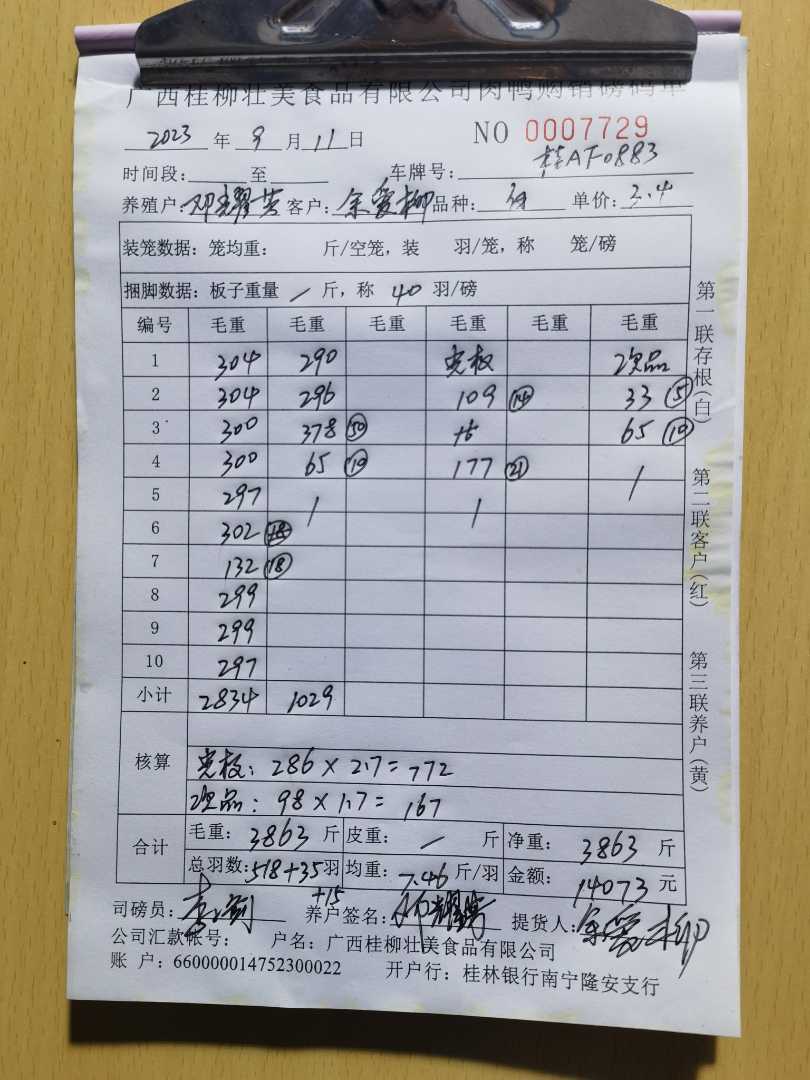 广西桂柳壮美食品有限公司肉鸭购销磅码单
2023 年 9 月 11 日 NO 0007729
时间段: 至 车牌号: 桂AF0883
养殖户: 邓耀芳 客户: 余爱柳 品种: 单价: 3.4
装笼数据: 笼均重: 斤/空笼, 装 羽/笼, 称 笼/磅
捆脚数据: 板子重量 / 斤, 称 40 羽/磅
编号 毛重 毛重 毛重 毛重 毛重 毛重
1 304 290 光板 次品
2 304 296 109 ⑭ 33 ⑤
3 300 378 ㊿ 65 ⑩
4 300 65 ⑩ 177 ㉑ /
5 297 / /
6 302
7 132 ⑱
8 299
9 299
10 297
小计 2834 1029
核算
光板: 286 × 2.7 = 772
次品: 98 × 1.7 = 167
合计 毛重: 3863 斤 皮重: / 斤 净重: 3863 斤
总羽数: 518+35 羽 均重: 7.46 斤/羽 金额: 14073 元
+15
司磅员: 养户签名: 提货人: 余爱柳
公司汇款帐号: 户名: 广西桂柳壮美食品有限公司
账 户: 660000014752300022 开户行: 桂林银行南宁隆安支行
第一联存根(白)
第二联客户(红)
第三联养户(黄)